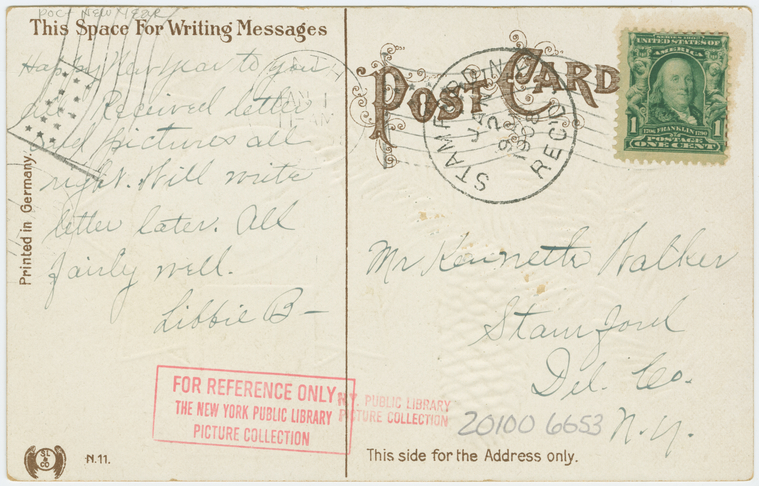 POC: NEW YEAR
This Space For Writing Messages
Happy New Year to you
all. Received letter
and pictures all
right. Will write
letter later. All
fairly well.
Libbie B—
Printed in Germany.
JAN 1
11-AM
SL & CO
N.11.
FOR REFERENCE ONLY
THE NEW YORK PUBLIC LIBRARY
PICTURE COLLECTION
N.Y. PUBLIC LIBRARY
PICTURE COLLECTION
POST CARD
STAMFORD
JAN
2
9 AM
1908
REC'D.
SERIES 1902
UNITED STATES OF
AMERICA
1 1
1706 FRANKLIN 1790
POSTAGE
ONE CENT
Mr Kenneth Walker
Stamford
Del. Co.
N.Y.
20100 6653
This side for the Address only.